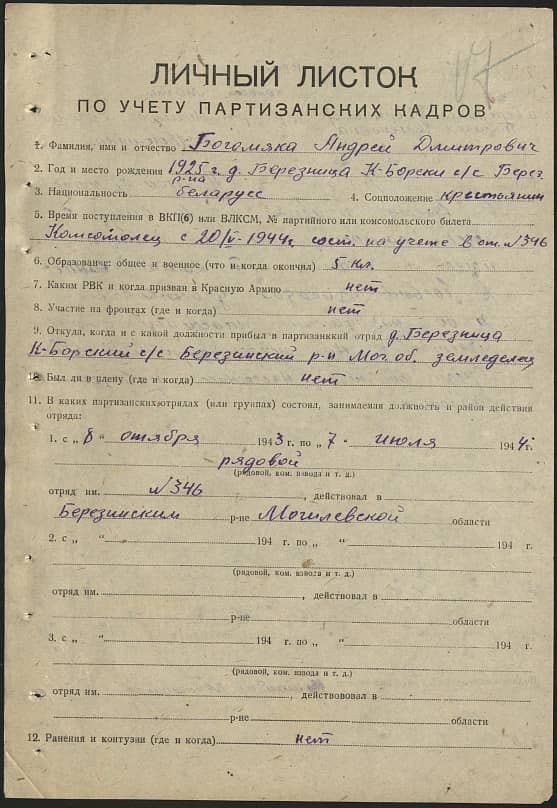 ЛИЧНЫЙ ЛИСТОК
ПО УЧЕТУ ПАРТИЗАНСКИХ КАДРОВ
1. Фамилия, имя и отчество Богомяка Андрей Дмитрович
2. Год и место рождения 1925 г. д. Березница К-Борски с/с Берез.
р-на
3. Национальность беларусс 4. Соцположение крестьянин
5. Время поступления в ВКП(б) или ВЛКСМ, № партийного или комсомольского билета
Комсомолец с 20/V-1944г. сост. на учете в от. №346
6. Образование: общее и военное (что и когда окончил) 5 кл.
7. Каким РВК и когда призван в Красную Армию нет
8. Участие на фронтах (где и когда) нет
9. Откуда, когда и с какой должности прибыл в партизанский отряд д. Березница
К-Борский с/с Березинский р-н Мог. об. земледелец
10. Был ли в плену (где и когда) нет
11. В каких партизанских отрядах (или группах) состоял, занимаемая должность и район действия
отряда:
1. с „ 8 “ отября 1943 г. по „ 7 “ июля 1944 г.
рядовой
(рядовой, ком. взвода и т. д.)
отряд им. №346, действовал в
Березинским р-не Могилевской области
2. с „ “ 194 г. по „ “ 194 г.
(рядовой, ком. взвода и т. д.)
отряд им. , действовал в
р-не области
3. с „ “ 194 г. по „ “ 194 г.
(рядовой, ком. взвода и т. д.)
отряд им. , действововал в
р-не области
12. Ранения и контузии (где и когда) нет